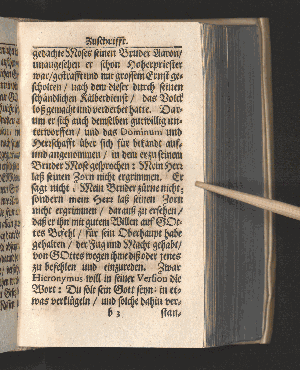 Zuschrifft.
gedachte Moses seinen Bruder Aaron/
unangesehen er schon Hoherpriester
war/gestrafft und mit grossem Ernst ge-
scholten / nach dem dieser durch seinen
schändlichen Kälberdienst / das Volck
loß gemacht und verderbet hatte. Dar-
um er sich auch demselben gutwillig un-
terworffen / und das Dominum und
Herrschafft über sich für bekandt auf-
und angenommen / in dem er zu seinem
Bruder Mose gesprochen: Mein Herr
laß seinen Zorn nicht ergrimmen. Er
sagt nicht: Mein Bruder zürne nicht;
sondern mein Herr laß seinen Zorn
nicht ergrimmen / darauß zu ersehen/
daß er ihn mit gutem Willen auf GOt-
tes Befehl / für sein Oberhaupt habe
gehalten / der Fug und Macht gehabt/
von GOttes wegen ihme diß oder jenes
zu befehlen und einzureden. Zwar
Hieronymus will in seiner Version die
Wort: Du solt sein Gott seyn: in et-
was verklügeln / und solche dahin ver-
b 3 stan-